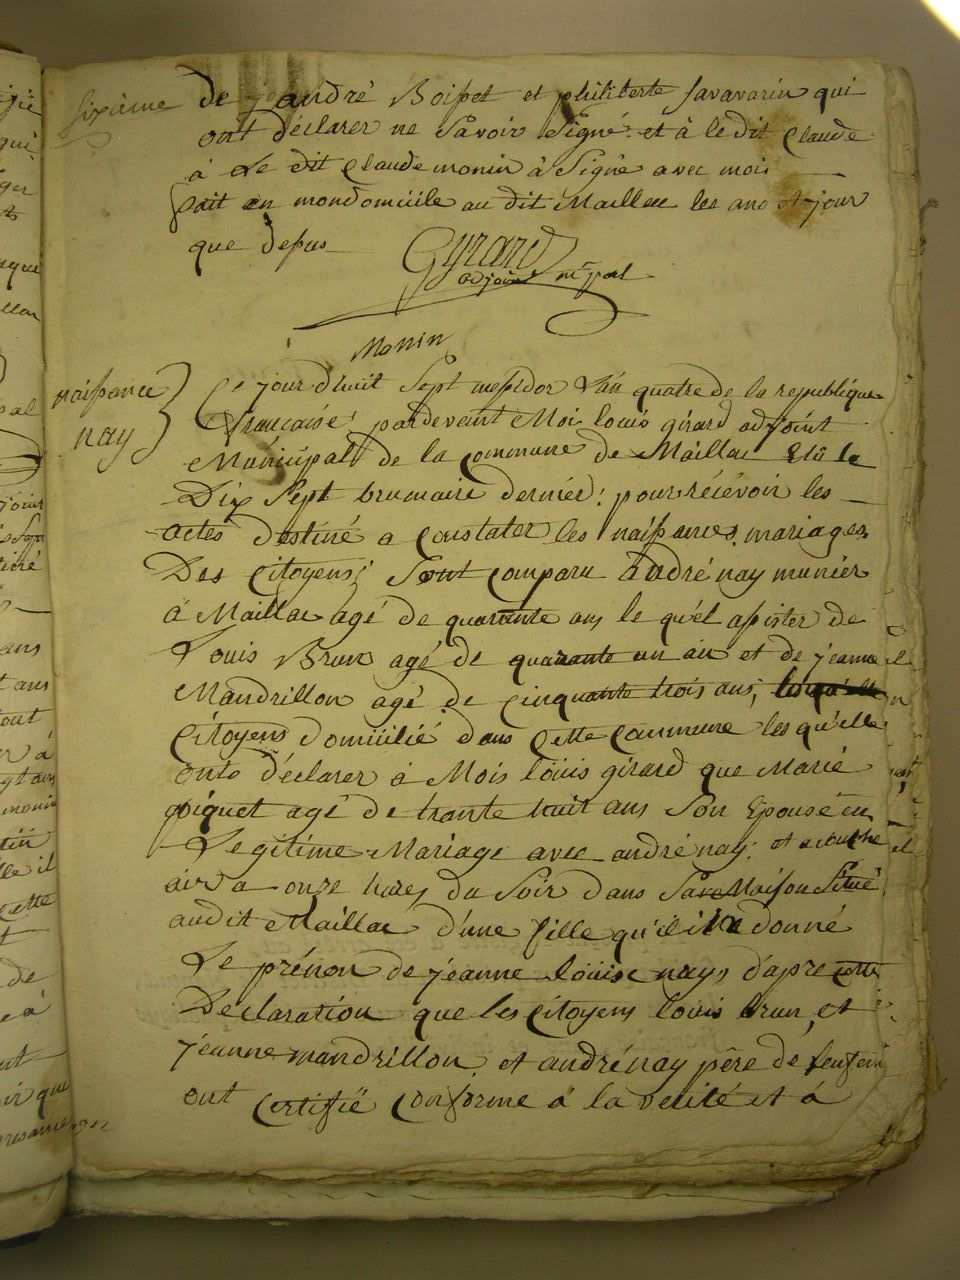 sixième
de jeandré Boisset et philiberte savavarin qui
ont déclarer ne savoir signé et à le dit Claude
à Le dit Claude monin à signé avec moi
fait en mondomicile au dit Maillac les an et jour
que depus
Gyrard
adjoint mcpal
Monin
naissance
nay
Ce jourdhuit sept messidor l'an quatre de la republique
francaise pardevant Moi louis girard adjoint
Municipal de la commune de Maillac Elu le
Dix sept brumaire dernier pour récévoir les
actes destiné a constater les naissances mariages
Des Citoyens sont comparu andré nay munier
à Maillac agé de quarante ans le quel assister de
Louis Brun agé de quarante un an et de jeanne
Mandrillon agé de cinquante trois ans,
Citoyens domicilié dans cette commune les qu'elle
onts déclarer à Mois louis girard que Marie
piquet agé de trante huit ans son Epouse en
Legitime Mariage avec andré nay et acouche
air a onze hures du soir dans sa Maison situé
audit Maillac d'une fille qu'il donné
Le prénon de jeanne louise nay, d'apre cette
Declaration que les citoyens louis brun, et
jeanne mandrillon et andré nay père de lenfan
ont certifié conforme a la verité et à